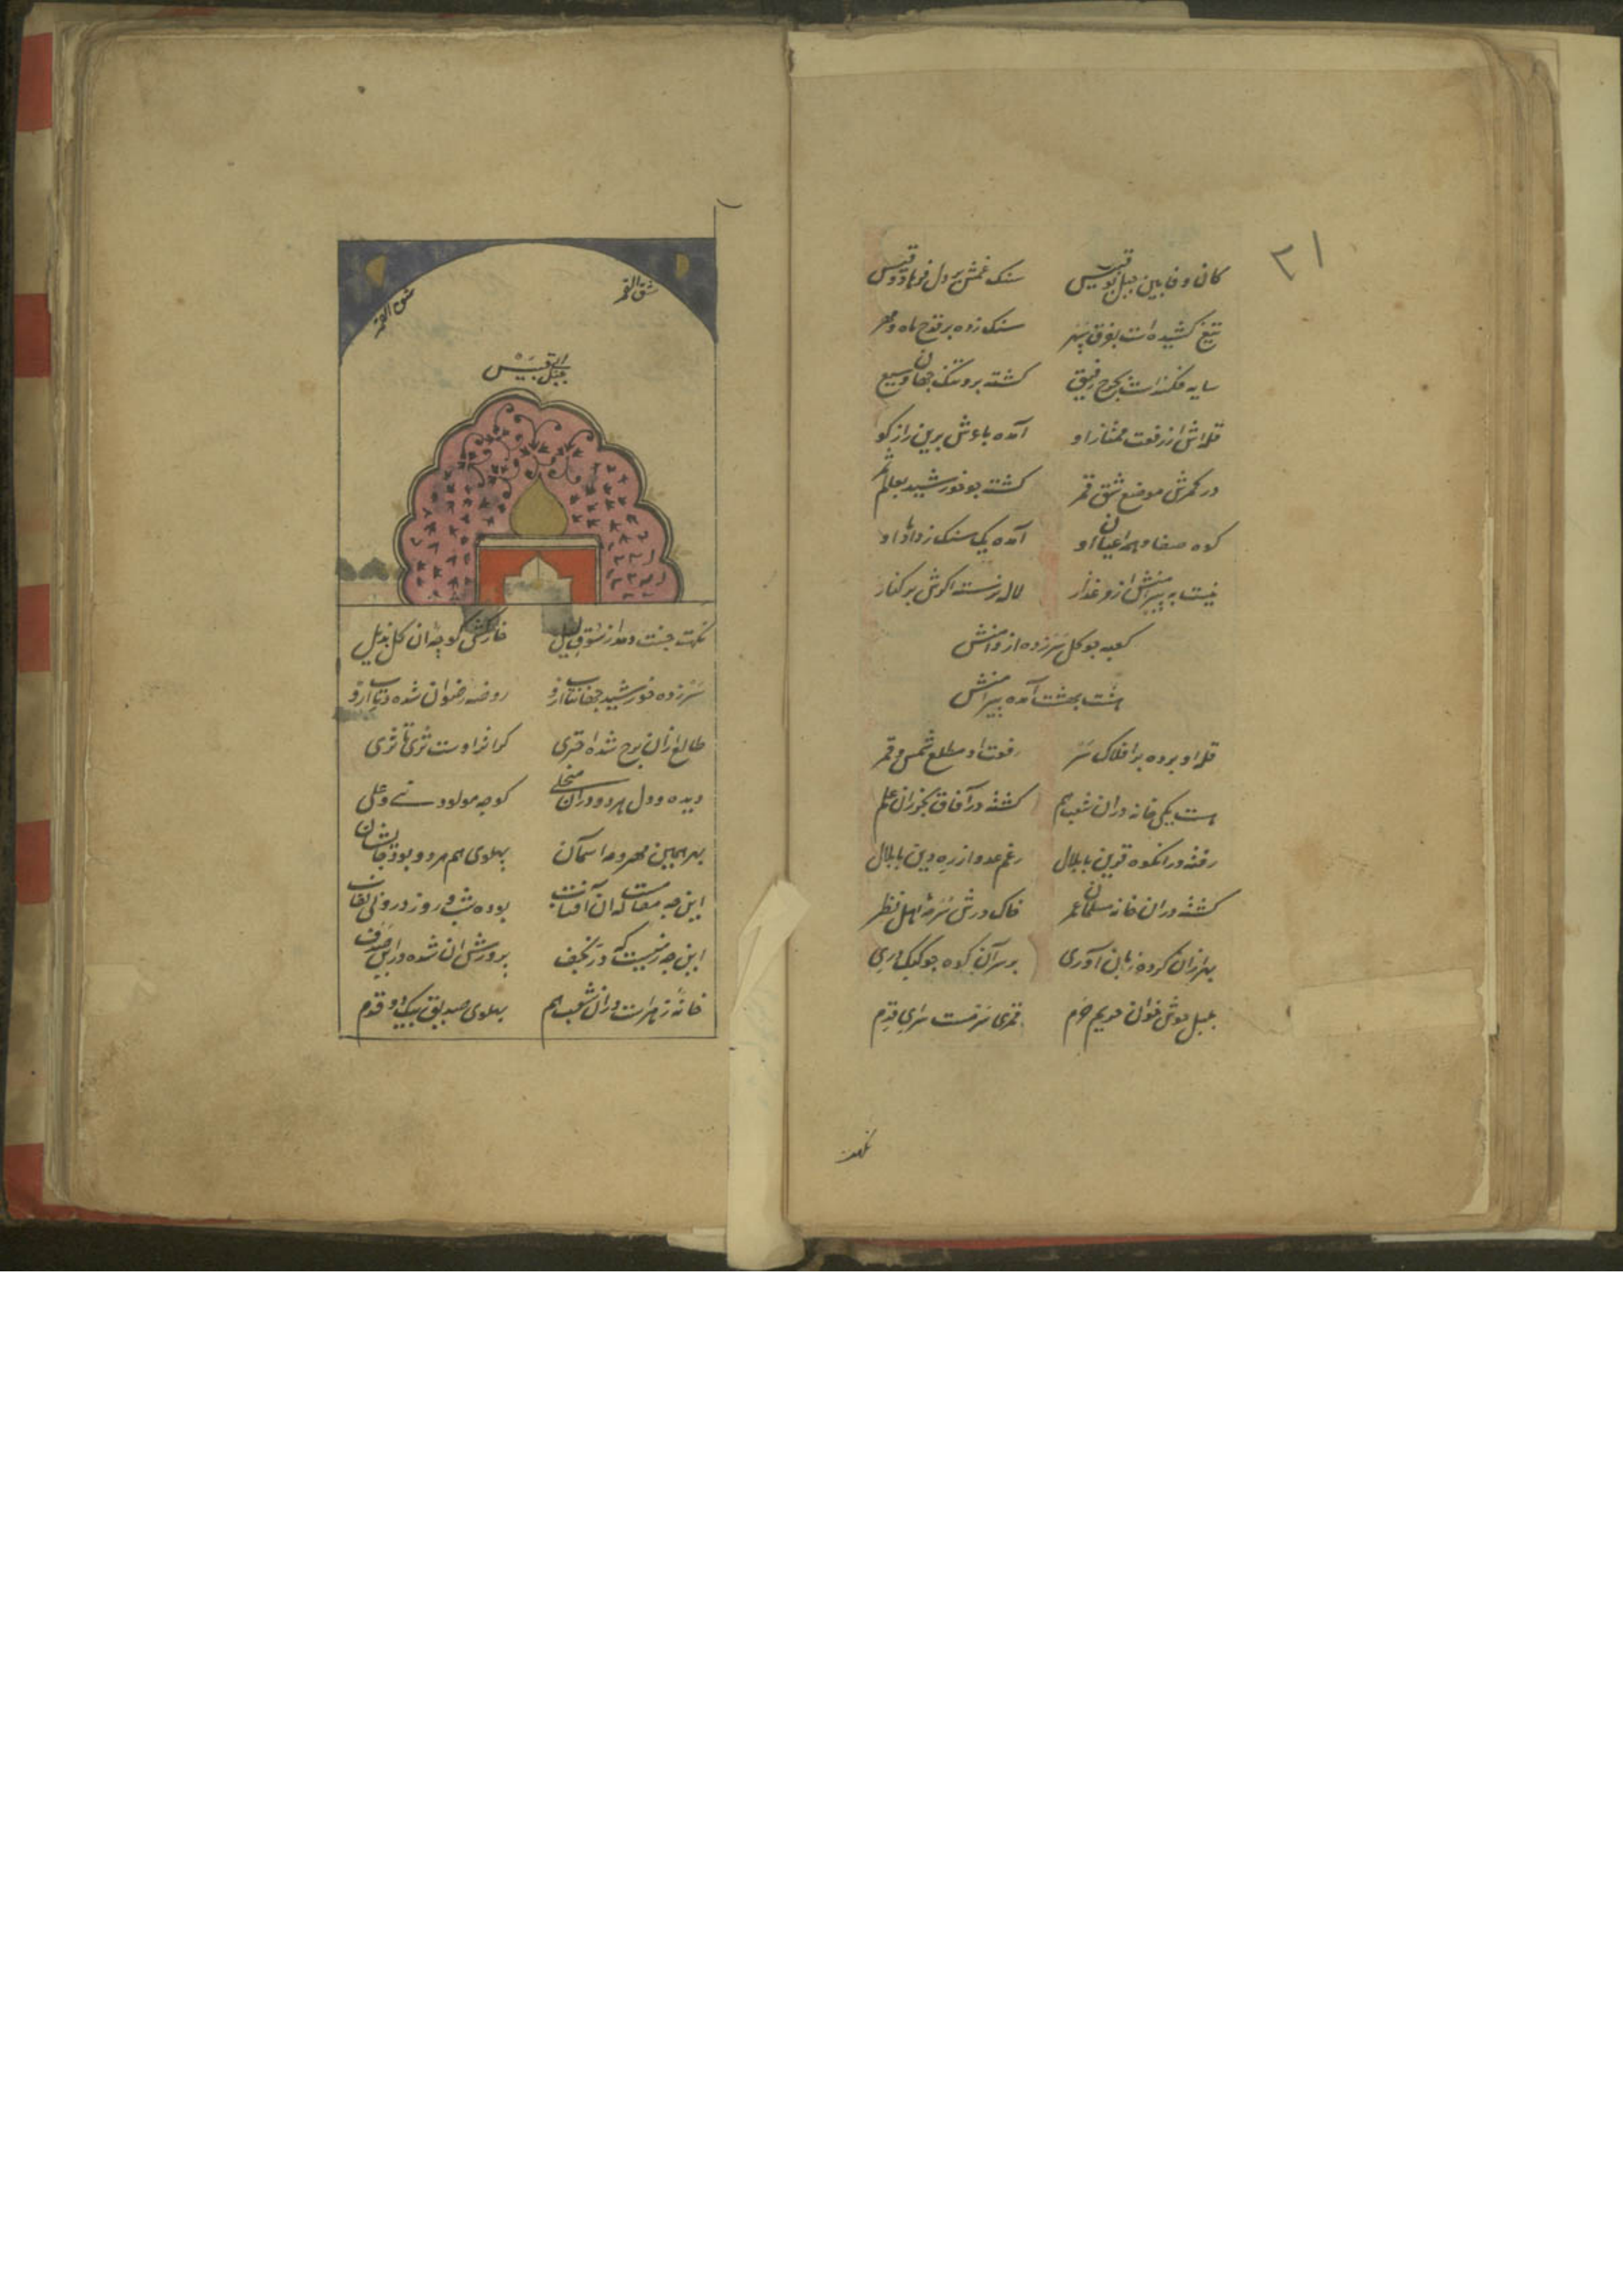 ۲۱
کان وفا بین جبل بوقبیس سنک غمش بر دل فرهاد و قیس
تیغ کشیده است بفوق سپهر سنک زده بر قدح ماه و مهر
سایه فکنداست بچرخ رفیق کشته برو تنک جهان وسیع
قله اش از رفعت ممتاز او آمده با عرش برین راز کو
در کمرش موضع شق قمر کشته چو خورشید بعالم
کوه صفا و همه اعیان او آمده یک سنک ز دامان او
نیست به پیرامنش از و غذار لاله رسته اکرش بر کنار
کعبه چو کل سرزده از دامنش
هشت بهشت آمده پیرامنش
قله او برده بر افلاک سر رفعت او مطلع شمس و قمر
هست یکی خانه دران شعب هم کشته در آفاق بخیزران علم
رفته در انکوه قرین با بلال رغم عدو از ره دین با بلال
کشته دران خانه مسلمان عمر خاک درش سرمه اهل نظر
بهر اذان کرده زبان آوری بر سر آن کوه چو کبک دری
بلبل خوش خوان حریم حرم قمری سرمست سرای قدم
نکهت
شق القمر
شق القمر
جبل ابی قبیس
نکهت جنت دمد از سوق لیل خارکش کوچه آن کل بذیل
سرزده خورشید جهانتاب ازو روضه رضوان شده در تاب ازو
طالع ازان برج شده اختری کز اثر اوست ثری تا ثری
دیده و دل هر دو دران منجلی کوچه مولود نبی و علی
بهر همین مهر و مه آسمان پهلوی هم هر دو بود جایشان
این چه مقامست که آن آفتاب بوده شب و روز درو بی نقاب
این چه زمینست که در نجف پرورش آن شده در این صدف
خانه زهراست دران شعب هم پهلوی صدیق بیک دو قدم